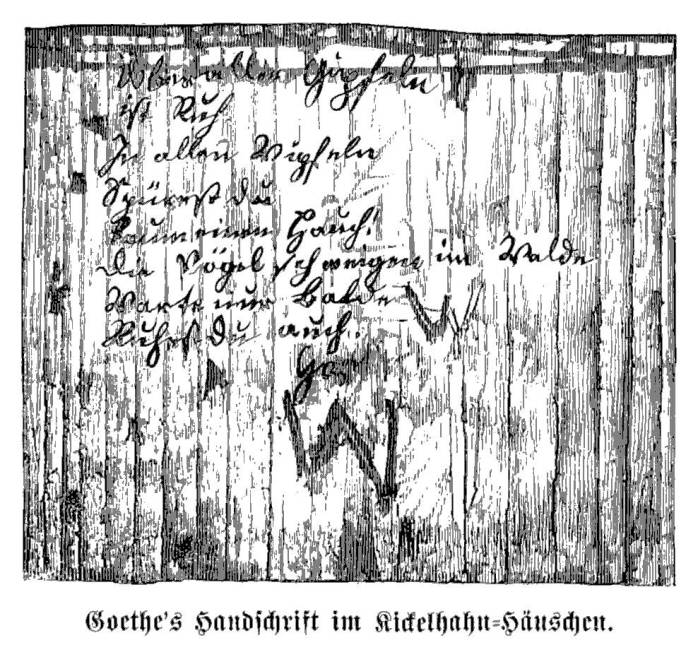 Über allen Gipfeln
ist Ruh
In allen Wipfeln
Spürest du
Kaum einen Hauch!
die Vögel schweigen im Walde
Warte nur Balde
Ruhest du auch.
W
W
Goethe's Handschrift im Kickelhahn-Häuschen.